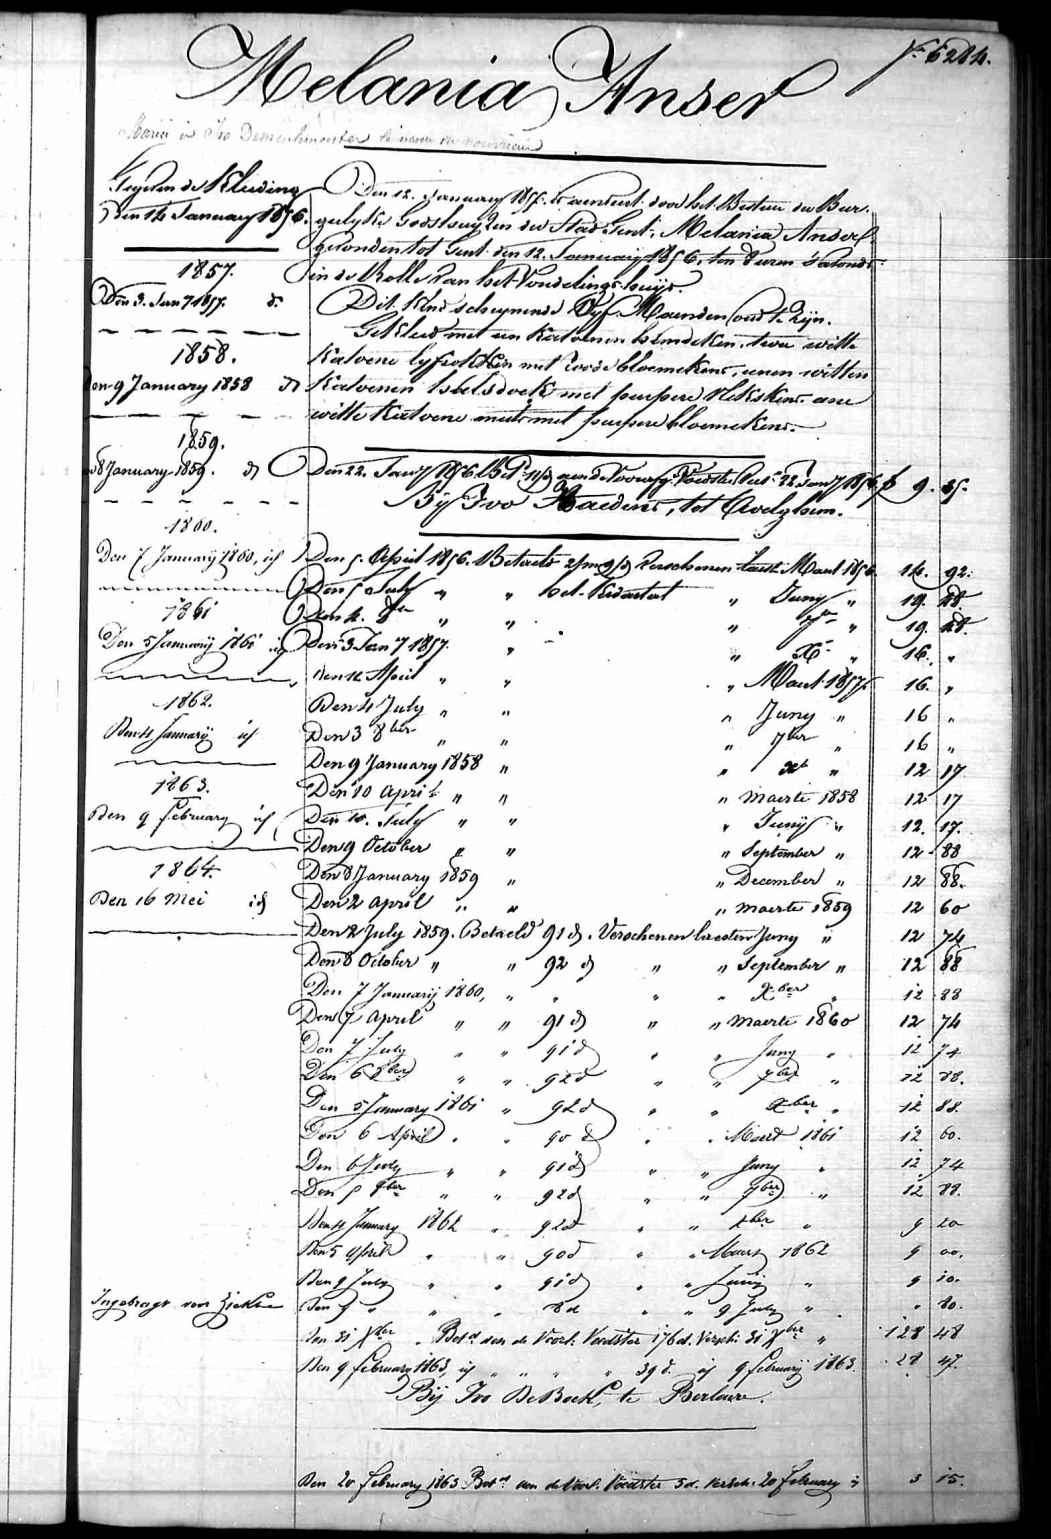 Melania Anser
N° 6284.
Gegeven de Kleeding
Den 14 January 1856.
1857.
Den 3. Jany 1857. d°
1858.
Den 9 January 1858 d°
1859.
Den 8 January 1859. id
1860.
Den 7 Januarij 1860, id
1861
Den 5 Januarij 1861 id
1862.
Den 4 Januarij id
1863.
Den 9 February id
1864.
Den 16 Mei id
Den 12. January 1856. is aenveerd door het Bestuer der Bur-
gerlyke Godshuyzen der Stad Gent, Melania Anser
gevonden tot Gent den 12. January 1856, ten uren 's avonds
in de Rolle van het Vondelings huys.
Dit Kind schynende Vyf Maenden oud te zyn.
Gekleed met een Katoenen hemdeken, twee witte
Katoene lyfrokskens met roode bloemekens, eenen witten
Katoenen halsdoek met purpere stekskens eene
witte Katoene muts met purpere bloemekens.
Den 22. Jany 1856 aen de Voorsz. Voedster 22 Jany 1856 f 9. 35.
By Ivo Haedens, tot Avelghem.
Den 5. April 1856. Betaeld Verschenen Maert 1856. 14. 92.
Den 5 July " " het Kwartael " Juny " 19. 28.
Den 4. 8ber " " " 7ber " 19. 28.
Den 3 Jany 1857. " " Xber " 16. "
Den 4 April " " " Maert 1857. 16. "
Den 4 July " " " Juny " 16 "
Den 3 8ber " " " 7ber " 16 "
Den 9 January 1858 " " Xber " 12 17
Den 10 April " " " Maerte 1858 12 17
Den 10. July " " " Junij " 12. 17.
Den 9 October " " " September " 12 88
Den 8 January 1859 " " December " 12 88.
Den 2 April " " " Maerte 1859 12 60
Den 2 July 1859. Betaeld 91 d. Verschenen laesten Juny " 12 74
Den 8 October " " 92 d " " September " 12 88
Den 7 Januarij 1860, " " " " Xber " 12 88
Den 7 April " " 91 d " " Maerte 1860 12 74
Den 7 July " " 91 d " " Juny " 12 74
Den 6 8ber " " 92 d " " 7ber " 12 88.
Den 5 January 1861 " 92 d " " Xber " 12 88.
Den 6 April " " 90 d " " Maert 1861 12 60.
Den 6 July " " 91 d " " Juny " 12 74
Den 5 8ber " " 92 d " " 7ber " 12 88.
Den 4 January 1862 " 92 d " " Xber " 9 20
Den 5 April " " 90 d " " Maert 1862 9 00.
Den 9 July " " 91 d " " Junij " 9 10.
Ingebragt van Ziekte
Den 9 " " " 8 d " " 9 July " " 80.
Den 31 Xber " Betd aen de Voorz. Voedster 176 d. Versch. 31 Xber " 128 48
Den 9 February 1863, id " " " " 39 d. id 9 February 1863. 28 47.
Bij Ivo De Bock, te Berlaere.
Den 20 February 1863 Betd aen de Voorz. Voedster 5 d. Versch. 20 February id 3 15.